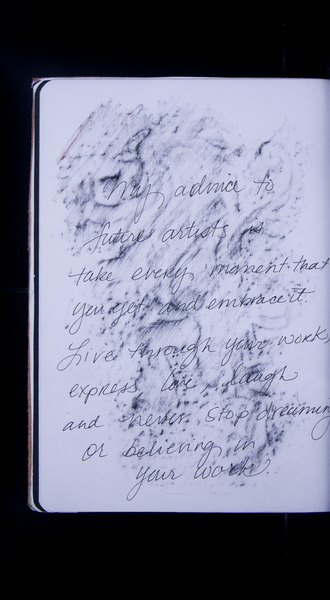 My advice to
future artists is
take every moment that
you get and embrace it.
Live through your work,
express love, laugh
and never stop dreaming
or believing in
your work.